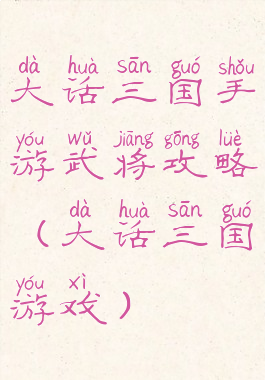 dà huà sān guó shǒu
大话三国手
yóu wǔ jiāng gōng lüè
游武将攻略
dà huà sān guó
（大话三国
yóu xì
游戏）